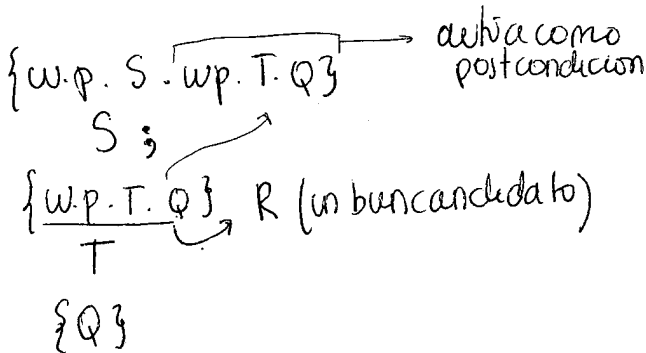 {w.p. S. wp. T. Q} → actúa como
postcondicion
S ;
{w.p. T. Q} R (un buen candidato)
T
{Q}